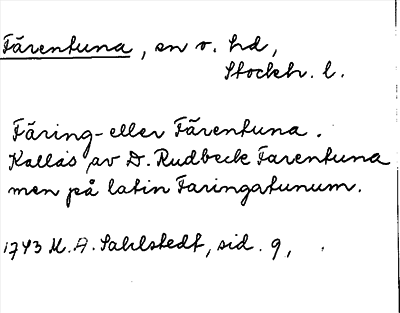 Färentuna, sn o. hd,
Stockh. l.
Färing- eller Färentuna.
Kallas av D. Rudbeck Farentuna
men på latin Faringatunum.
1743 M. A. Sahlstedt, sid. 9,